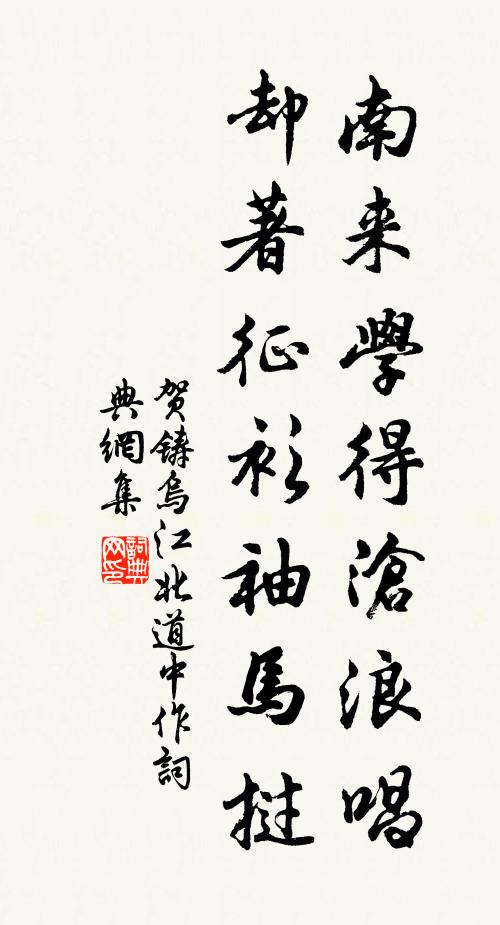 南来學得滄浪唱
却著征衫袖馬撾
贺鑄烏江北道中作詞
典網集
詞典网印